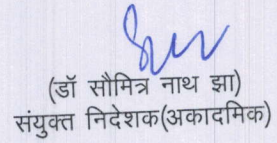 (डॉ सौमित्र नाथ झा)
संयुक्त निदेशक(अकादमिक)